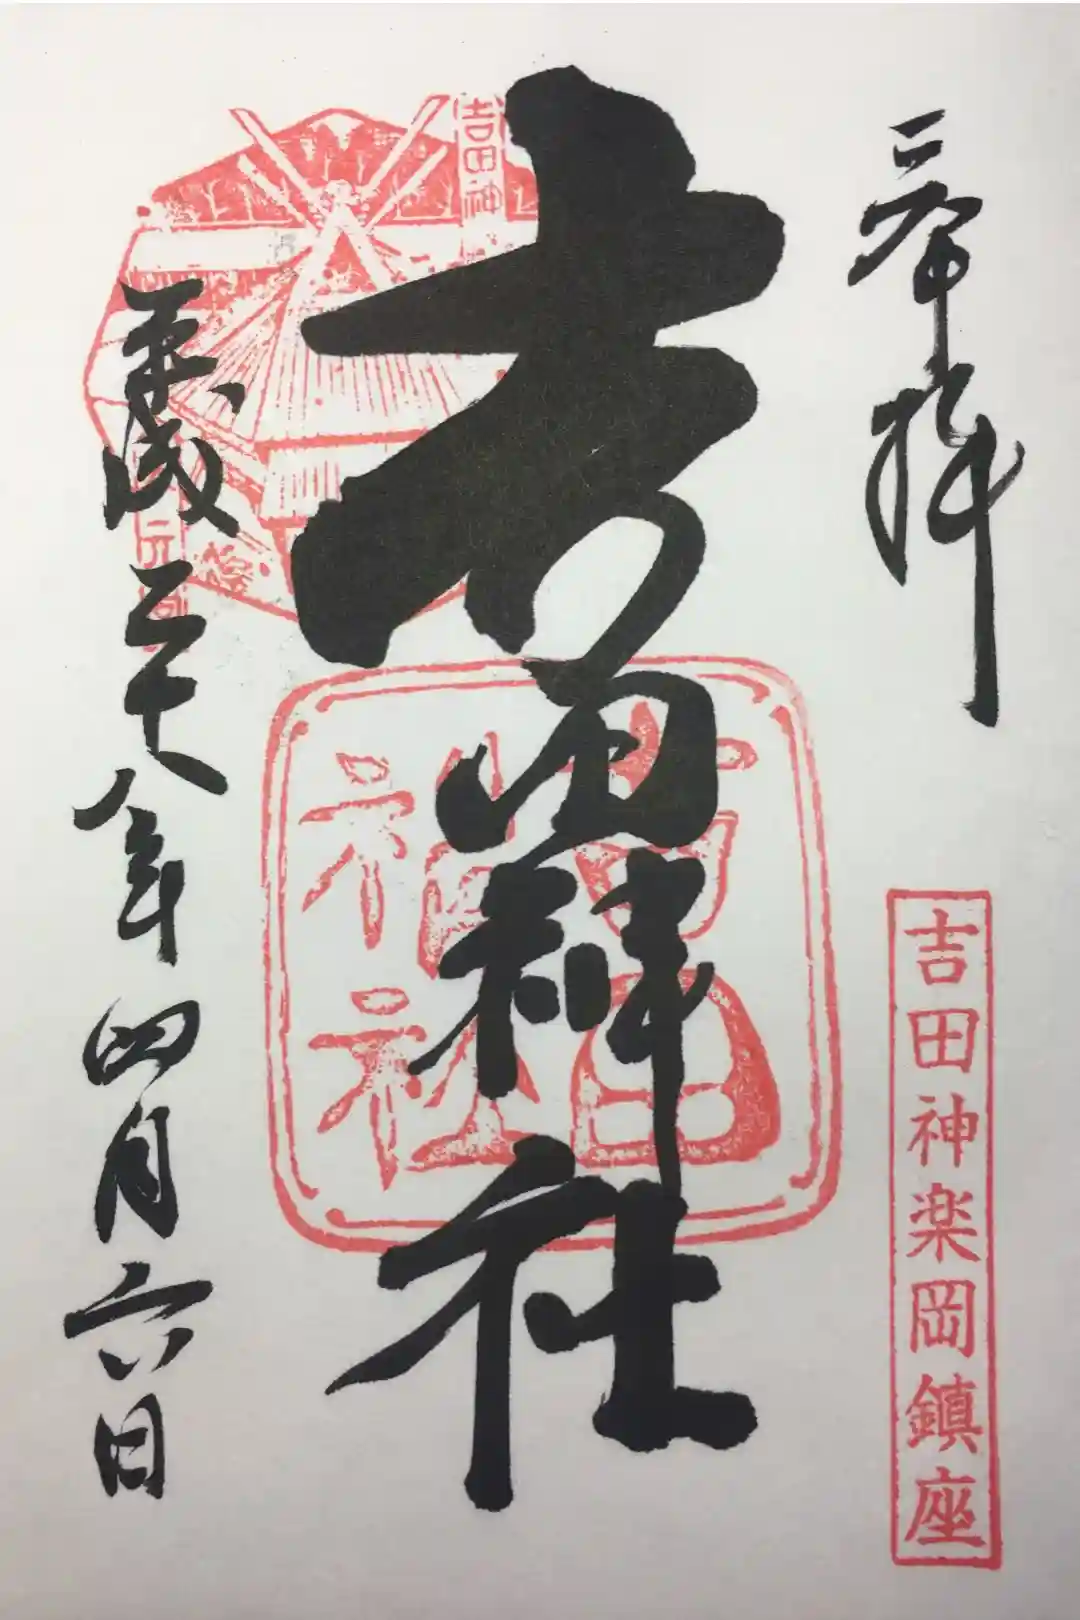 奉拝
吉田神楽岡鎮座
吉田神社
吉田神社
吉田神
平成二十八年四月六日